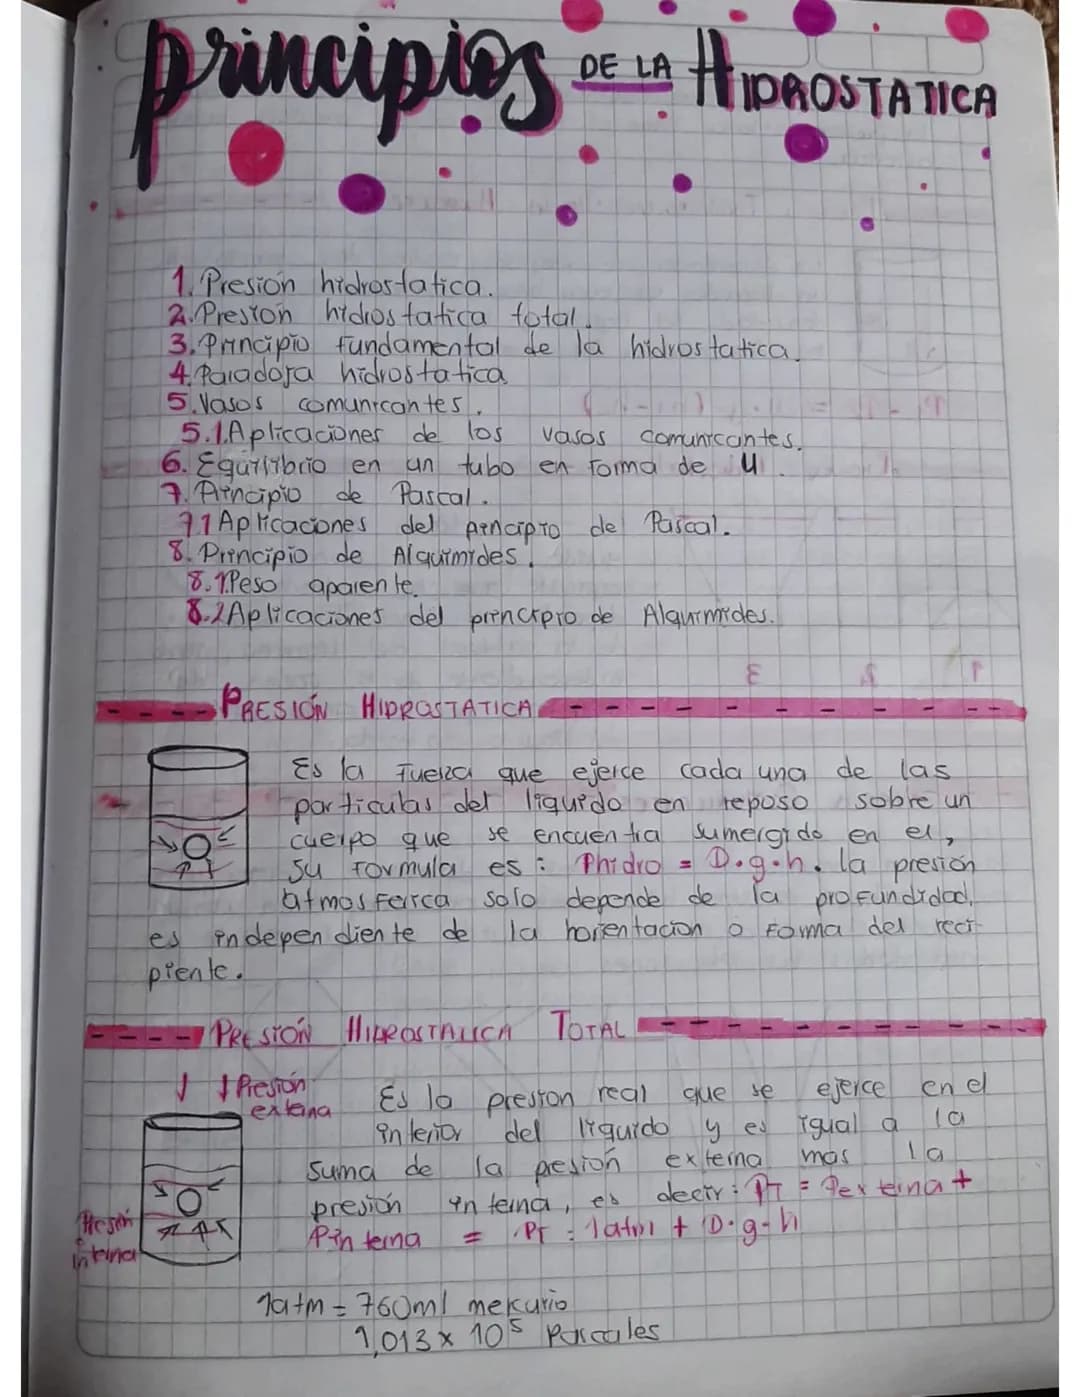 principios DE LA HIDROSTATICA
1. Presión hidrostatica.
2. Presion hidrostatica total.
3. Principio fundamental de la hidrostatica.
4. Paradoja hidrostatica
5. Vasos comunicantes.
5.1. Aplicaciones de los vasos comunicantes.
6. Equilibrio en un tubo en forma de U.
7. Principio de Pascal.
7.1 Aplicaciones del principio de Pascal.
8. Principio de Alquimides.
8.1. Peso aparente.
8.2 Aplicaciones del principio de Alquimides.
PRESIÓN HIDROSTATICA
Es la fuerza que ejerce cada una de las
particulas del liquido en reposo sobre un
cuerpo que se encuentra sumergido en el,
su formula es: Phidro = D.g.h. la presión
atmosferica solo depende de la profundidad,
es independiente de la horientacion o forma del reci-
piente.
PRESIÓN HIDROSTATICA TOTAL
Presión
externa
Es la presion real que se ejerce en el
interior del liquido y es igual a la
suma de la presión externa mas la
presión interna, es decir: PT = Pexterna +
Pinterna = PT = 1atm + D.g.h
Presión
interna
1atm = 760ml mekurio
1,013 x 10⁵ Pascales